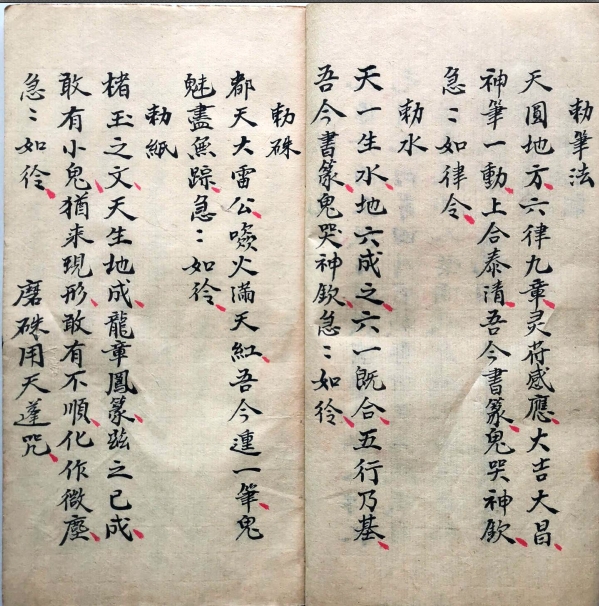 勅筆法
天圓地方六律九章灵符感應大吉大昌
神筆一動上合泰清吾今書篆鬼哭神欽
急：如律令
勅水
天一生水地六成之六一既合五行乃基
吾今書篆鬼哭神欽急：如徑
勅硃
都天大雷公噀火滿天紅吾今連一筆鬼
魅盡無踪急：如徑
勅紙
楮玉之文天生地成龍章鳳篆玆之已成
敢有小鬼猶来現形敢有不順化作微塵
急：如徑
磨硃用天蓬咒